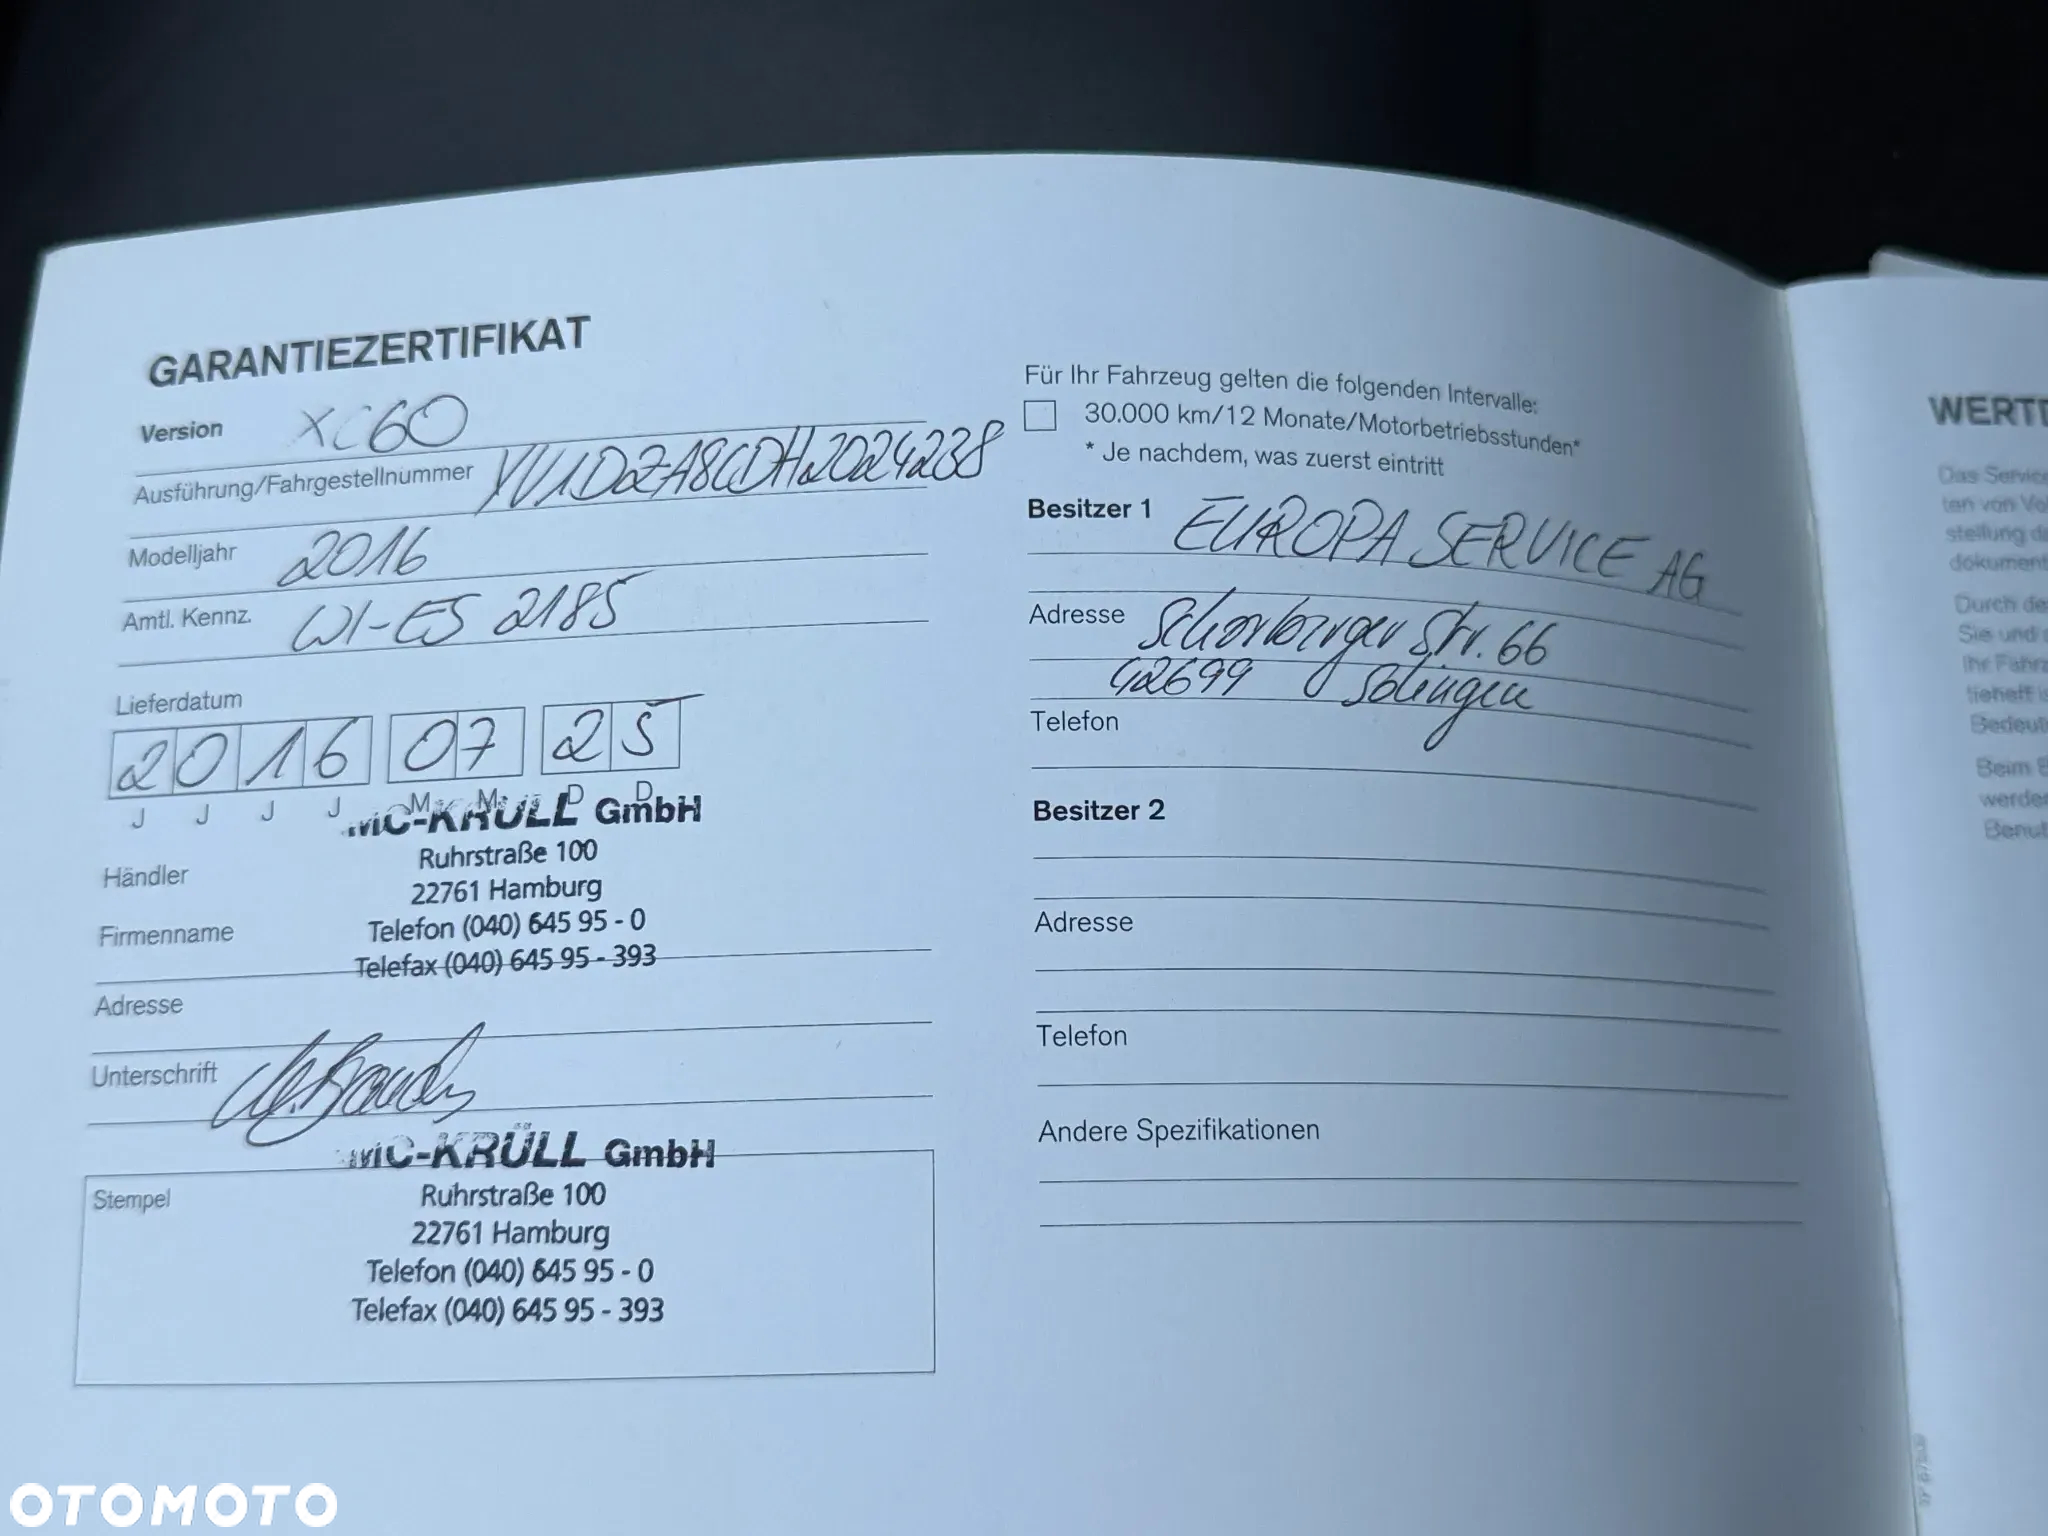 GARANTIEZERTIFIKAT
Version XC60
Ausführung/Fahrgestellnummer YV1DZA8CDH2024238
Modelljahr 2016
Amtl. Kennz. WI-ES 2185
Lieferdatum
2016 07 25
J J J J M M D D
MC-KRÜLL GmbH
Ruhrstraße 100
22761 Hamburg
Telefon (040) 645 95 - 0
Telefax (040) 645 95 - 393
Händler
Firmenname
Adresse
Unterschrift
MC-KRÜLL GmbH
Stempel
Ruhrstraße 100
22761 Hamburg
Telefon (040) 645 95 - 0
Telefax (040) 645 95 - 393
Für Ihr Fahrzeug gelten die folgenden Intervalle:
30.000 km/12 Monate/Motorbetriebsstunden*
* Je nachdem, was zuerst eintritt
Besitzer 1 EUROPA SERVICE AG
Adresse Schorberger Str. 66
42699 Solingen
Telefon
Besitzer 2
Adresse
Telefon
Andere Spezifikationen
WERTD
Das Service
ten von Vol
stellung d
dokument
Durch de
Sie und
Ihr Fahrz
Bedeut
Beim B
werde
Benut
OTOMOTO